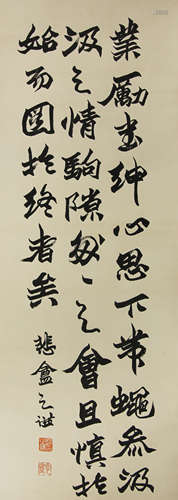 業厲書紳心思下帶蠅參汲
汲之情駒隙匆〻之會且慎於
始而圖於終者矣
悲盦之謙